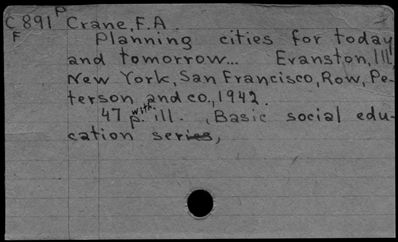 P
C891 Crane, F.A.
F Planning cities for today
and tomorrow... Evanston, Ill.
New York, San Francisco, Row, Pe-
terson and co., 1942.
47 p. with ill. , Basic social edu-
cation series,